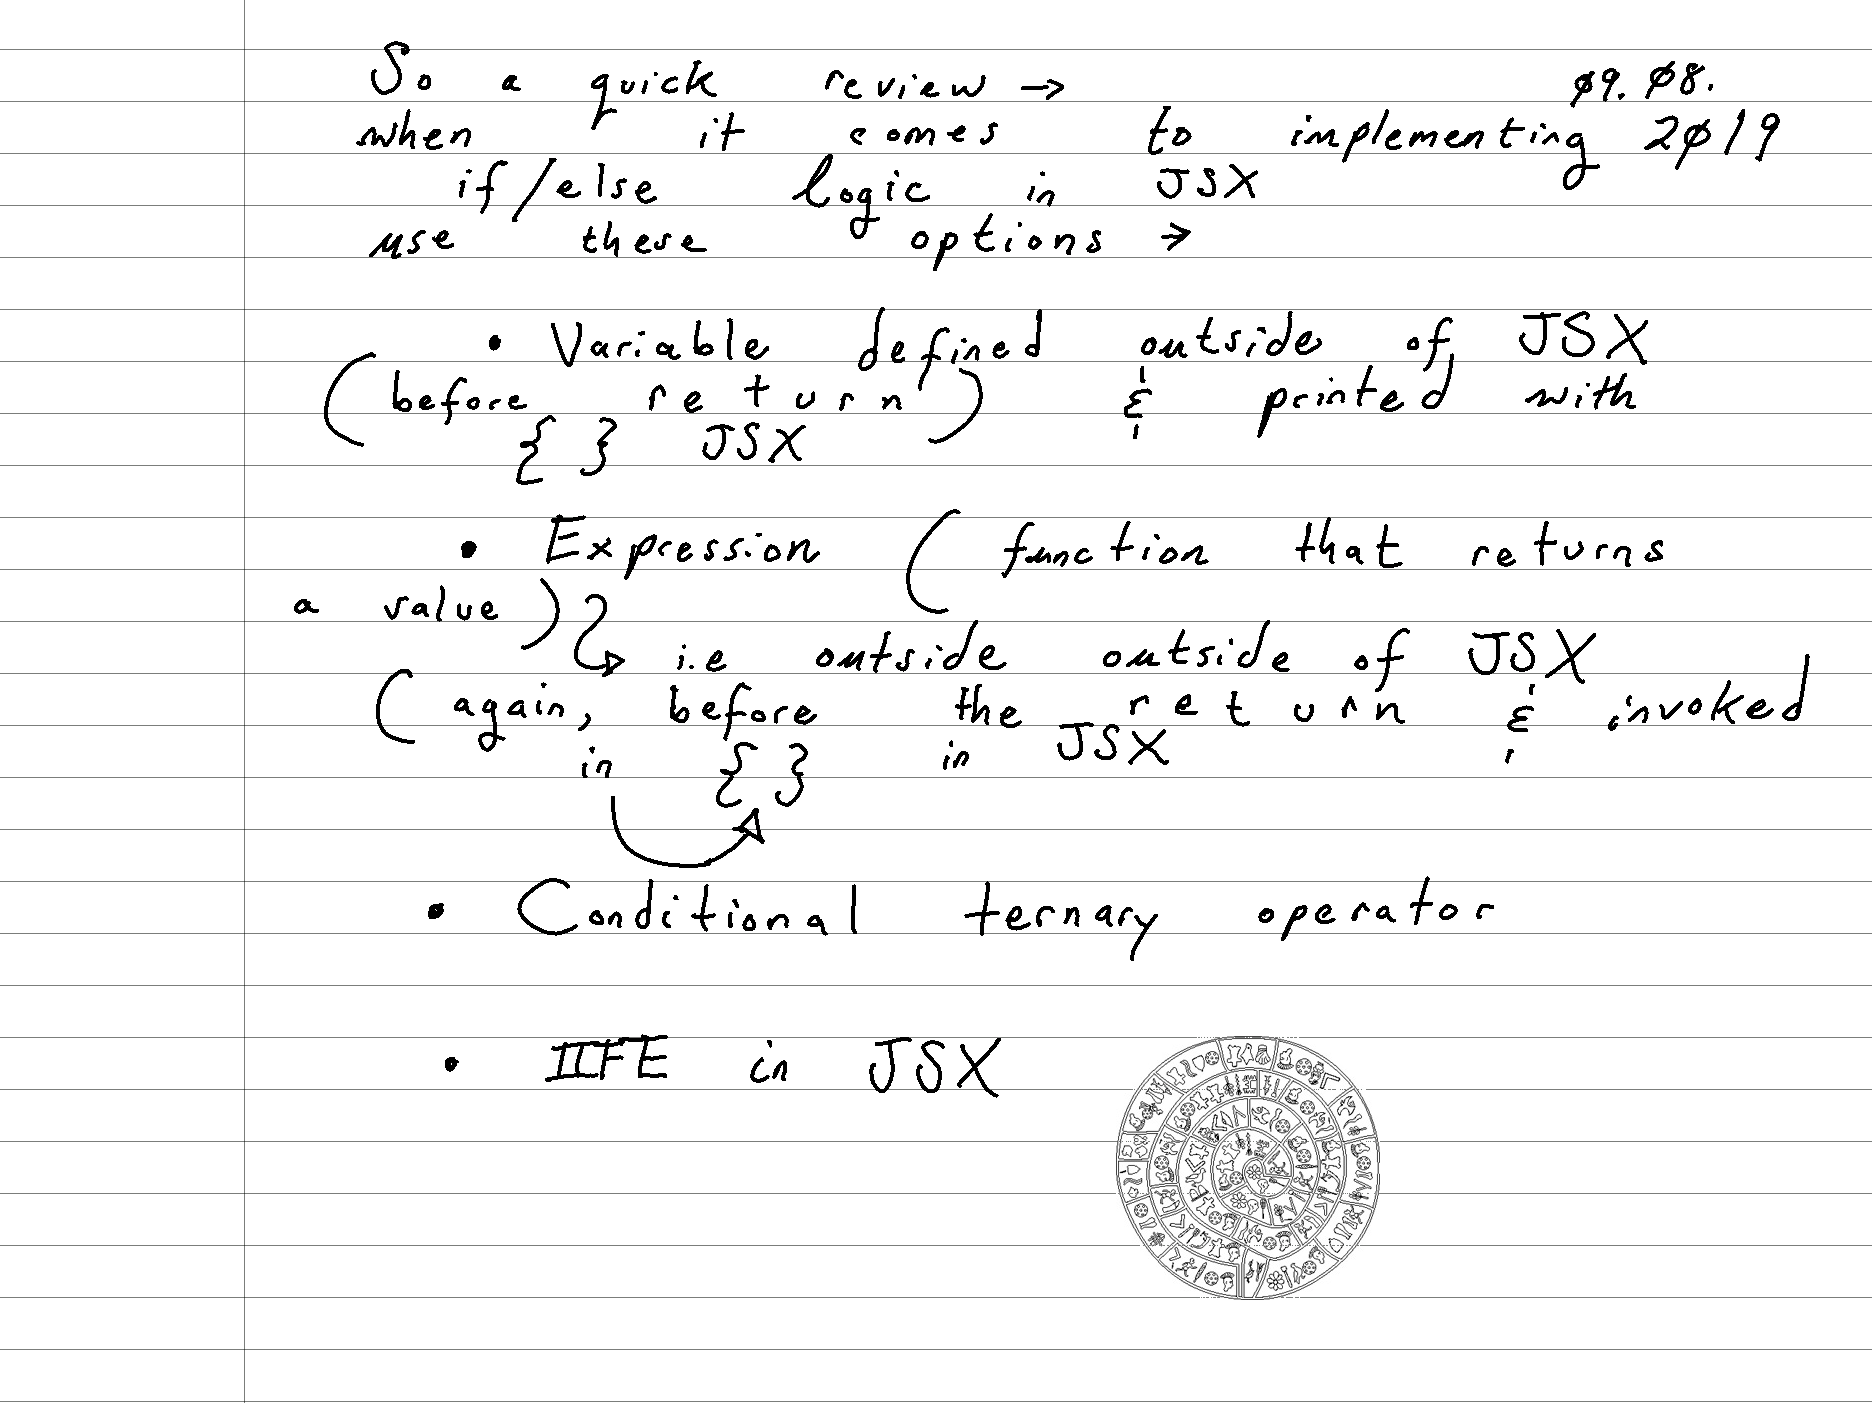 So a quick review → ø9. ø8.
when it comes to implementing 2ø19
if/else logic in JSX
use these options →
• Variable defined outside of JSX
(before return) & printed with
{ } JSX
• Expression (function that returns
a value)
i.e outside outside of JSX
(again, before the return & invoked
in { } in JSX
• Conditional ternary operator
• IIFE in JSX